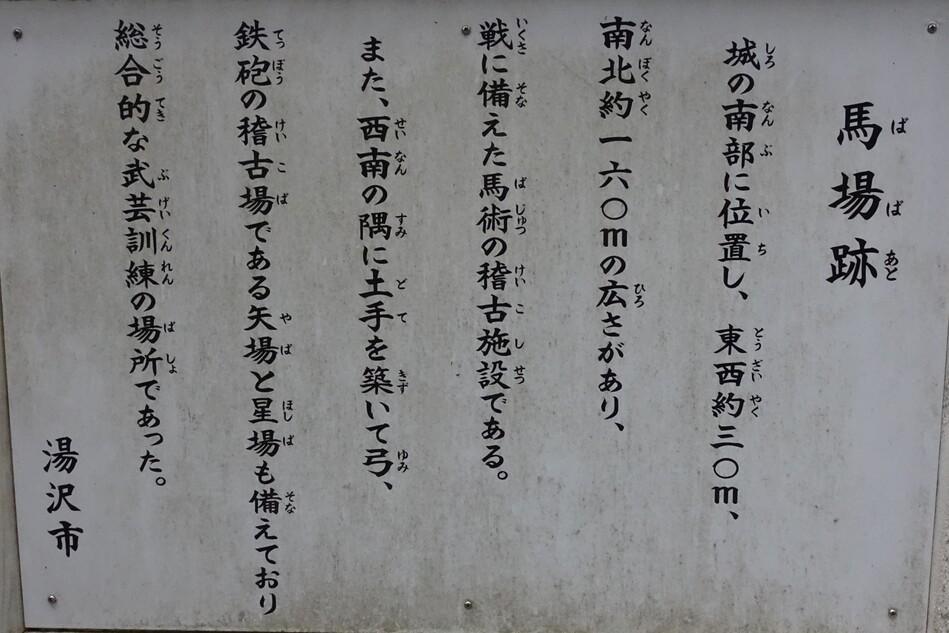 馬場跡
城の南部に位置し、東西約三〇m、
南北約一六〇mの広さがあり、
戦に備えた馬術の稽古施設である。
また、西南の隅に土手を築いて弓、
鉄砲の稽古場である矢場と星場も備えており
総合的な武芸訓練の場所であった。
湯沢市